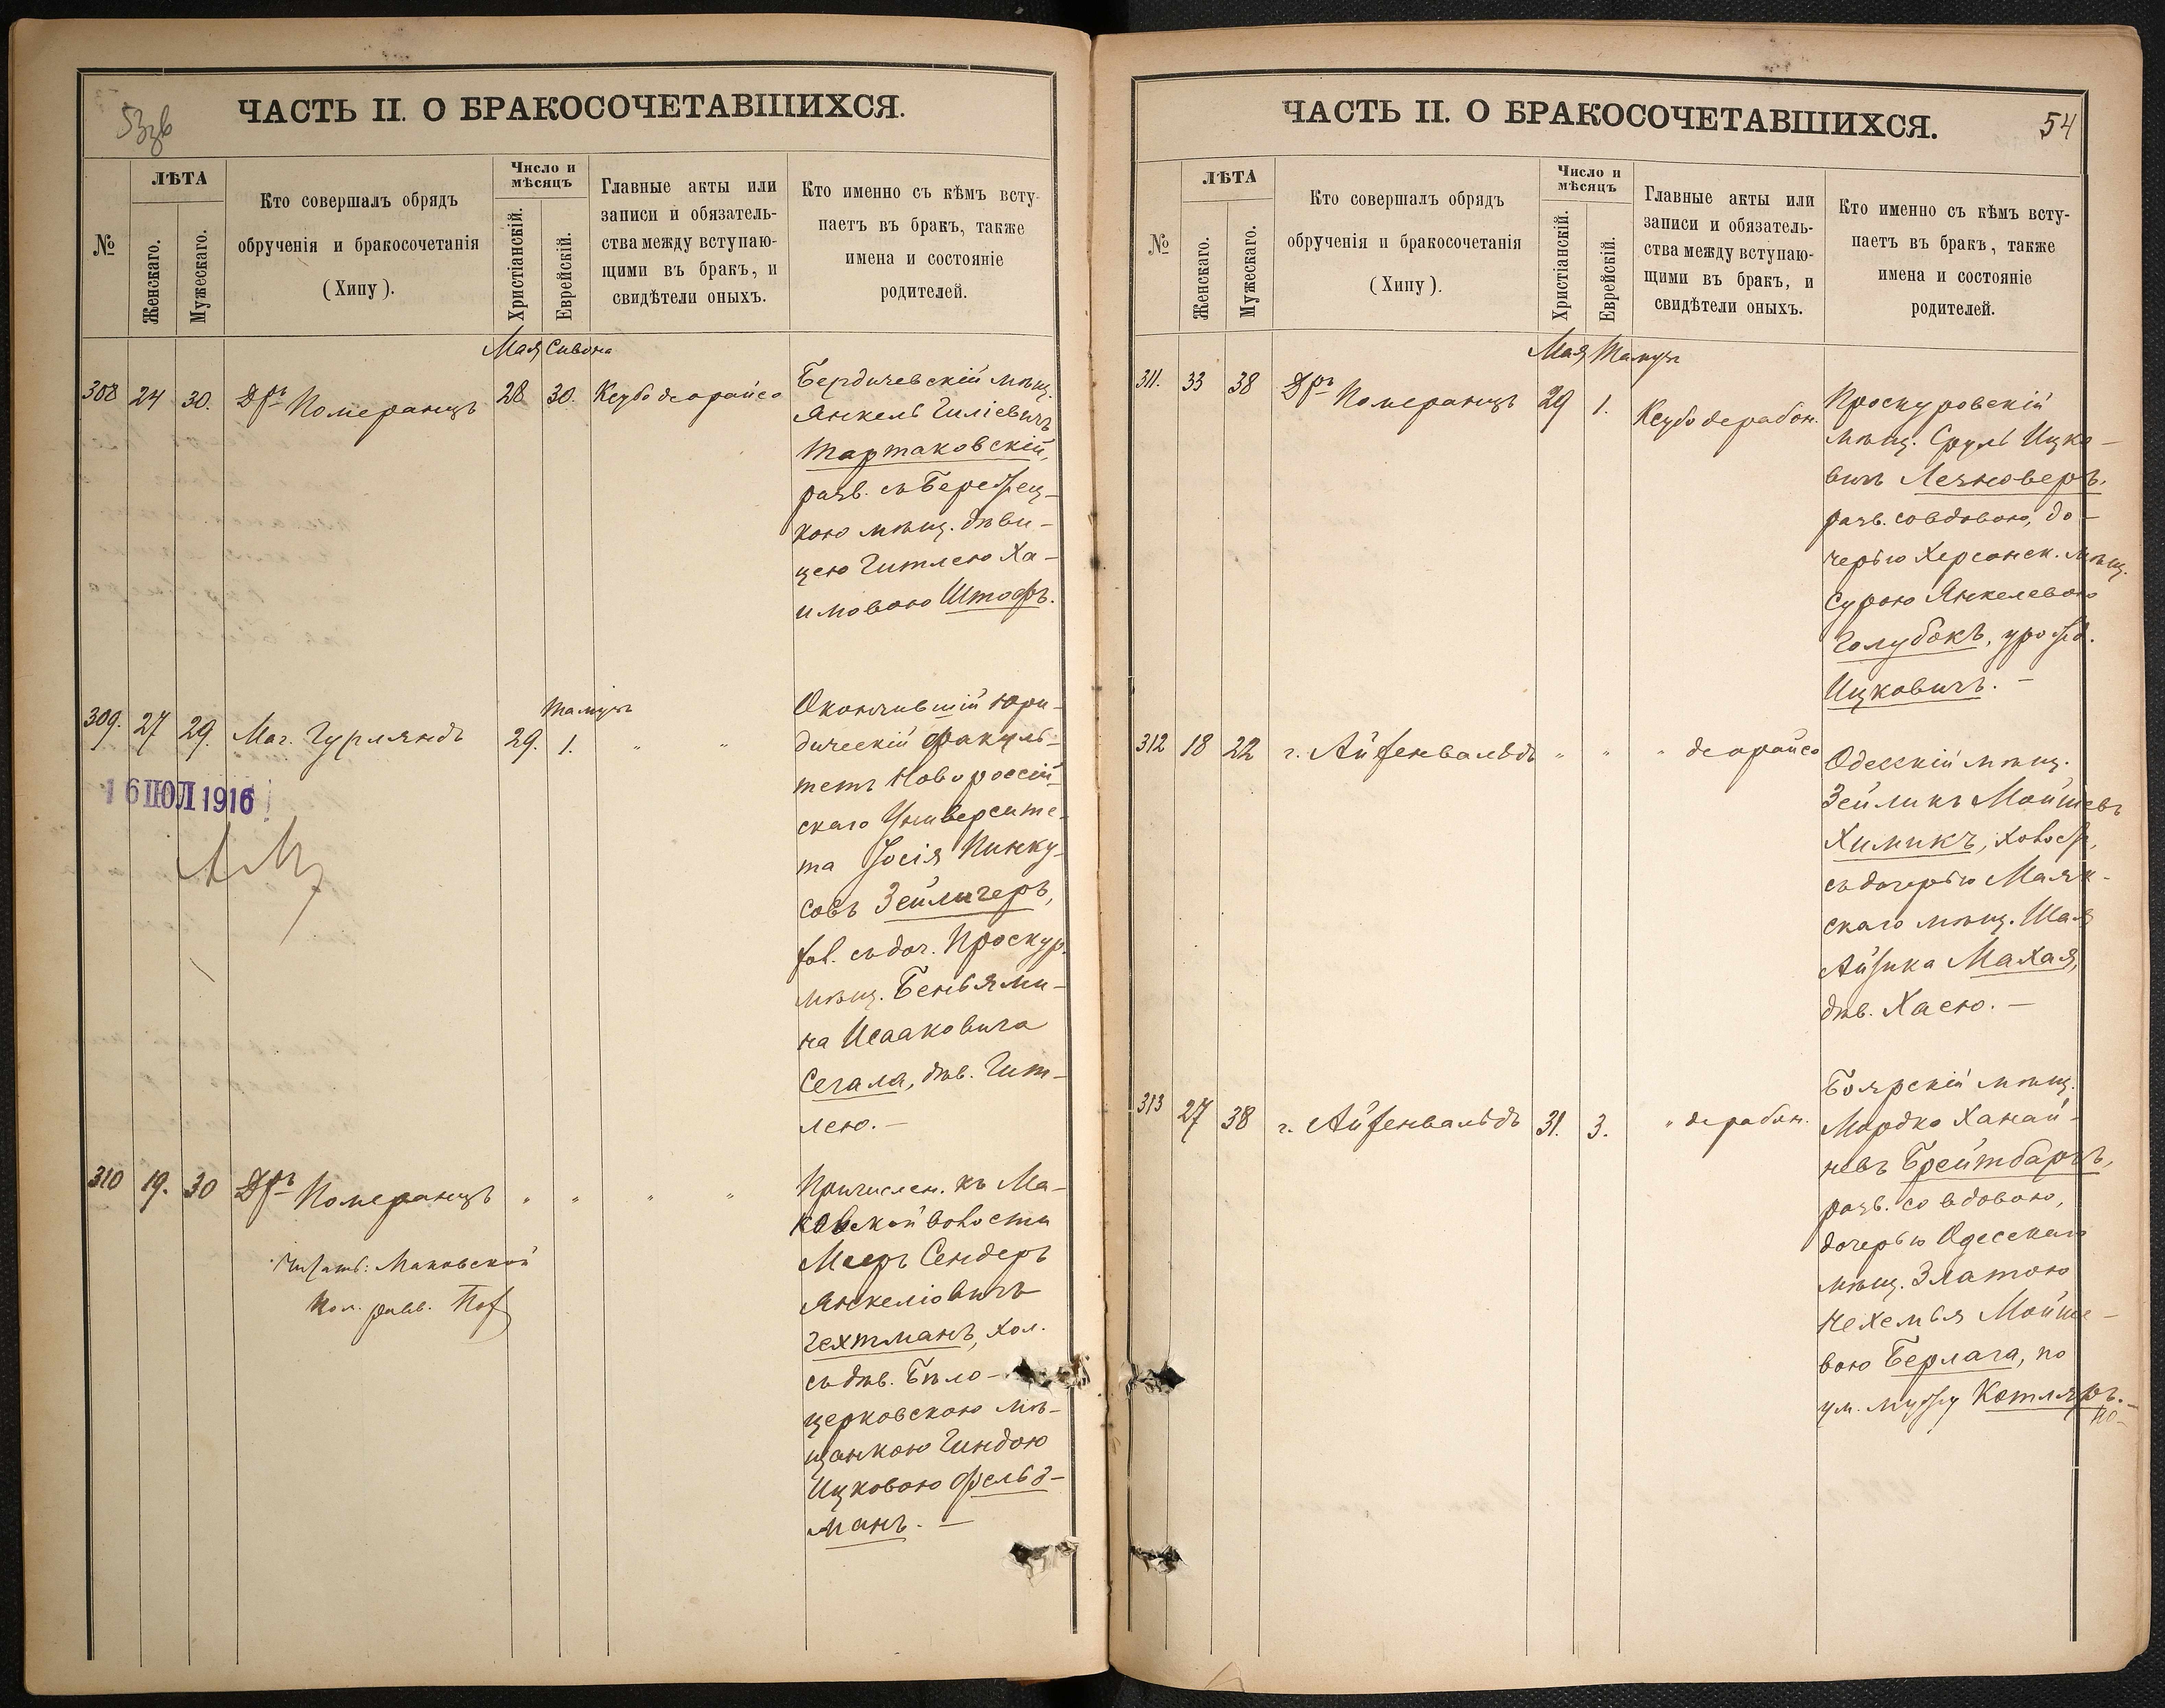 ЧАСТЬ II. О БРАКОСОЧЕТАВШИХСЯ.
№
ЛѢТА
Женскаго.
Мужескаго.
Кто совершалъ обрядъ
обрученія и бракосочетанія
(Хипу).
Число и
мѣсяцъ
Христіанскій.
Еврейскій.
Главные акты или
записи и обязатель-
ства между вступаю-
щими въ бракъ, и
свидѣтели оныхъ.
Кто именно съ кѣмъ всту-
паетъ въ бракъ, также
имена и состояніе
родителей.
Мая Сивона
308 24 30. Дръ Померанцъ 28 30. Ксубо деорайсо
Бердичевскій мѣщ.
Янкель Гиліевичъ
Тартаковскій,
разв. съ Бережец-
кою мѣщ. дѣви-
цею Гитлею Ха-
имовою Штофъ.
Тамузъ
309. 27 29. Маг. Гурляндъ 29. 1. " "
Окончившій юри-
дическій факуль-
тетъ Новороссій-
скаго Университе-
та Іосія Пинку-
совъ Зейлигеръ,
хол. съ доч. Проскур.
мѣщ. Беньями-
на Исааковича
Сегала, дѣв. Гит-
лею. —
16 ІЮЛ 1916
310 19. 30 Дръ Померанцъ " " " "
Причислен. къ Ма-
ковской волости
Мееръ Сендеръ
Янкеліовичъ
Гехтманъ, хол.
съ дѣв. Бѣло-
церковскою мѣ-
щанкою Гиндою
Ицковою Фельд-
манъ. —
Читать: Маковской
ЧАСТЬ II. О БРАКОСОЧЕТАВШИХСЯ.
54
№
ЛѢТА
Женскаго.
Мужескаго.
Кто совершалъ обрядъ
обрученія и бракосочетанія
(Хипу).
Число и
мѣсяцъ
Христіанскій.
Еврейскій.
Главные акты или
записи и обязатель-
ства между вступаю-
щими въ бракъ, и
свидѣтели оныхъ.
Кто именно съ кѣмъ всту-
паетъ въ бракъ, также
имена и состояніе
родителей.
Мая Тамузъ
311. 33 38 Дръ Померанцъ 29 1. Ксубо дерабон.
Проскуровскій
мѣщ. Сруль Ицко-
вичъ Лезноверъ,
разв. со вдовою, до-
черью Херсонск. мѣщ.
Сурою Янкелевою
Голубокъ, урожд.
Ицковичъ. —
312 18 22 г. Айзенвальдъ " " " деорайсо
Одесскій мѣщ.
Зейликъ Мойшевъ
Химикъ, холост,
съ дочерью Маяк-
скаго мѣщ. Шая
Айзика Махая,
дѣв. Хасю. —
313 27 38 г. Айзенвальдъ 31. 3. " дерабон.
Боярскій мѣщ.
Мордко Ханай-
невъ Брейтбардъ,
разв. со вдовою,
дочерью Одесскаго
мѣщ. Златою
Нехемья Мойше-
вою Берлага, по
ум. мужу Котляръ. —